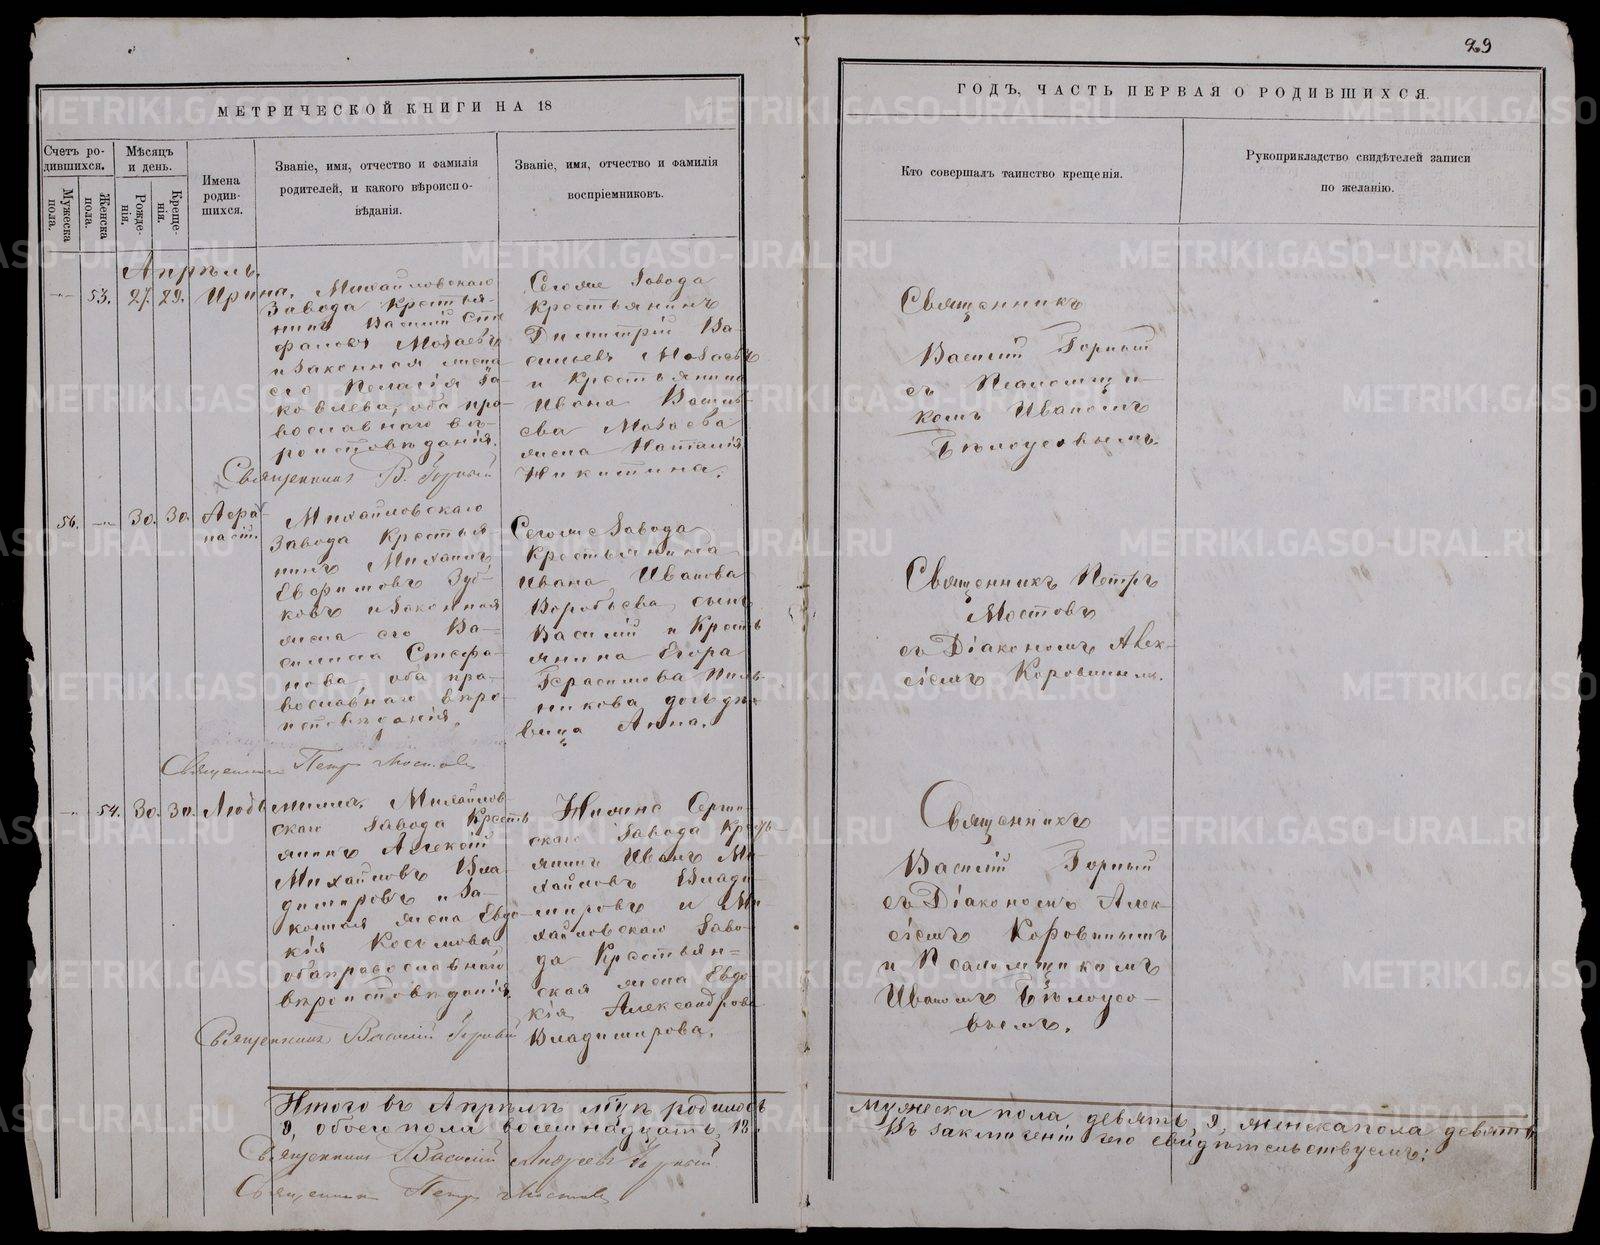 29
МЕТРИЧЕСКОЙ КНИГИ НА 18
ГОДЪ, ЧАСТЬ ПЕРВАЯ О РОДИВШИХСЯ.
Счетъ ро-
дившихся.
Мужеска пола.
Женска пола.
Мѣсяцъ
и день.
Рожде-
нія.
Креще-
нія.
Имена
родив-
шихся.
Званіе, имя, отчество и фамилія
родителей, и какого вѣроиспо-
вѣданія.
Званіе, имя, отчество и фамилія
воспріемниковъ.
Кто совершалъ таинство крещенія.
Рукоприкладство свидѣтелей записи
по желанію.
Апрѣль.
53. 27. 29. Ирина.
Михайловскаго
Завода Крестья-
нинъ Василій Сте
фановъ Мозаевъ
и законная жена
его Пелагія Я-
ковлева, оба пра-
вославнаго вѣ-
роисповѣданія.
Священникъ В. Горный
Сегоже Завода
Крестьянинъ
Димитрій Ва-
сильевъ Мозаевъ
и Крестьянина
Ивана Василь-
ева Мозаева
жена Наталія
Никитина.
Священникъ
Василій Горный
съ Псаломщи-
комъ Иваномъ
Бѣлоусовымъ.
56. 30. 30. Афа-
насій.
Михайловскаго
Завода Крестья
нинъ Михаилъ
Евфимовъ Зуб-
ковъ и законная
жена его Ва-
силиса Стефа-
нова, оба пра-
вославнаго вѣро-
исповѣданія.
Священникъ Петръ Мостовъ
Сегоже Завода
Крестьянина
Ивана Иванова
Воробьева сынъ
Василій и Кресть
янина Егора
Герасимова
никова дочь дѣ-
вица Анна.
Священникъ Петръ
Мостовъ
съ Діакономъ Алек-
сіемъ Коровинымъ.
54. 30. 30. Людмилла.
Михайлов-
скаго Завода Кресть
янинъ Алексій
Михайловъ Вла
димировъ и за-
конная жена Евдо-
кія Косьмова
оба православнаго
вѣроисповѣданія.
Священникъ Василій Горный
Нижне Сергин-
скаго Завода Кресть-
янинъ Иванъ Ми-
хайловъ Влади-
мировъ и Ми-
хайловскаго Заво-
да Крестьян-
ская жена Евдо
кія Александрова
Владимирова.
Священникъ
Василій Горный
съ Діакономъ Алек-
сіемъ Коровинымъ
и Псаломщикомъ
Иваномъ Бѣлоусо-
вымъ.
Итого въ Апрѣлѣ м-цѣ родилось мужеска пола девять, 9, женска пола девять
9, обоего пола восемнадцать, 18. Въ заключеніи чего свидѣтельствуемъ:
Священникъ Василій Андреевъ Горный
Священникъ Петръ Мостовъ
METRIKI.GASO-URAL.RU